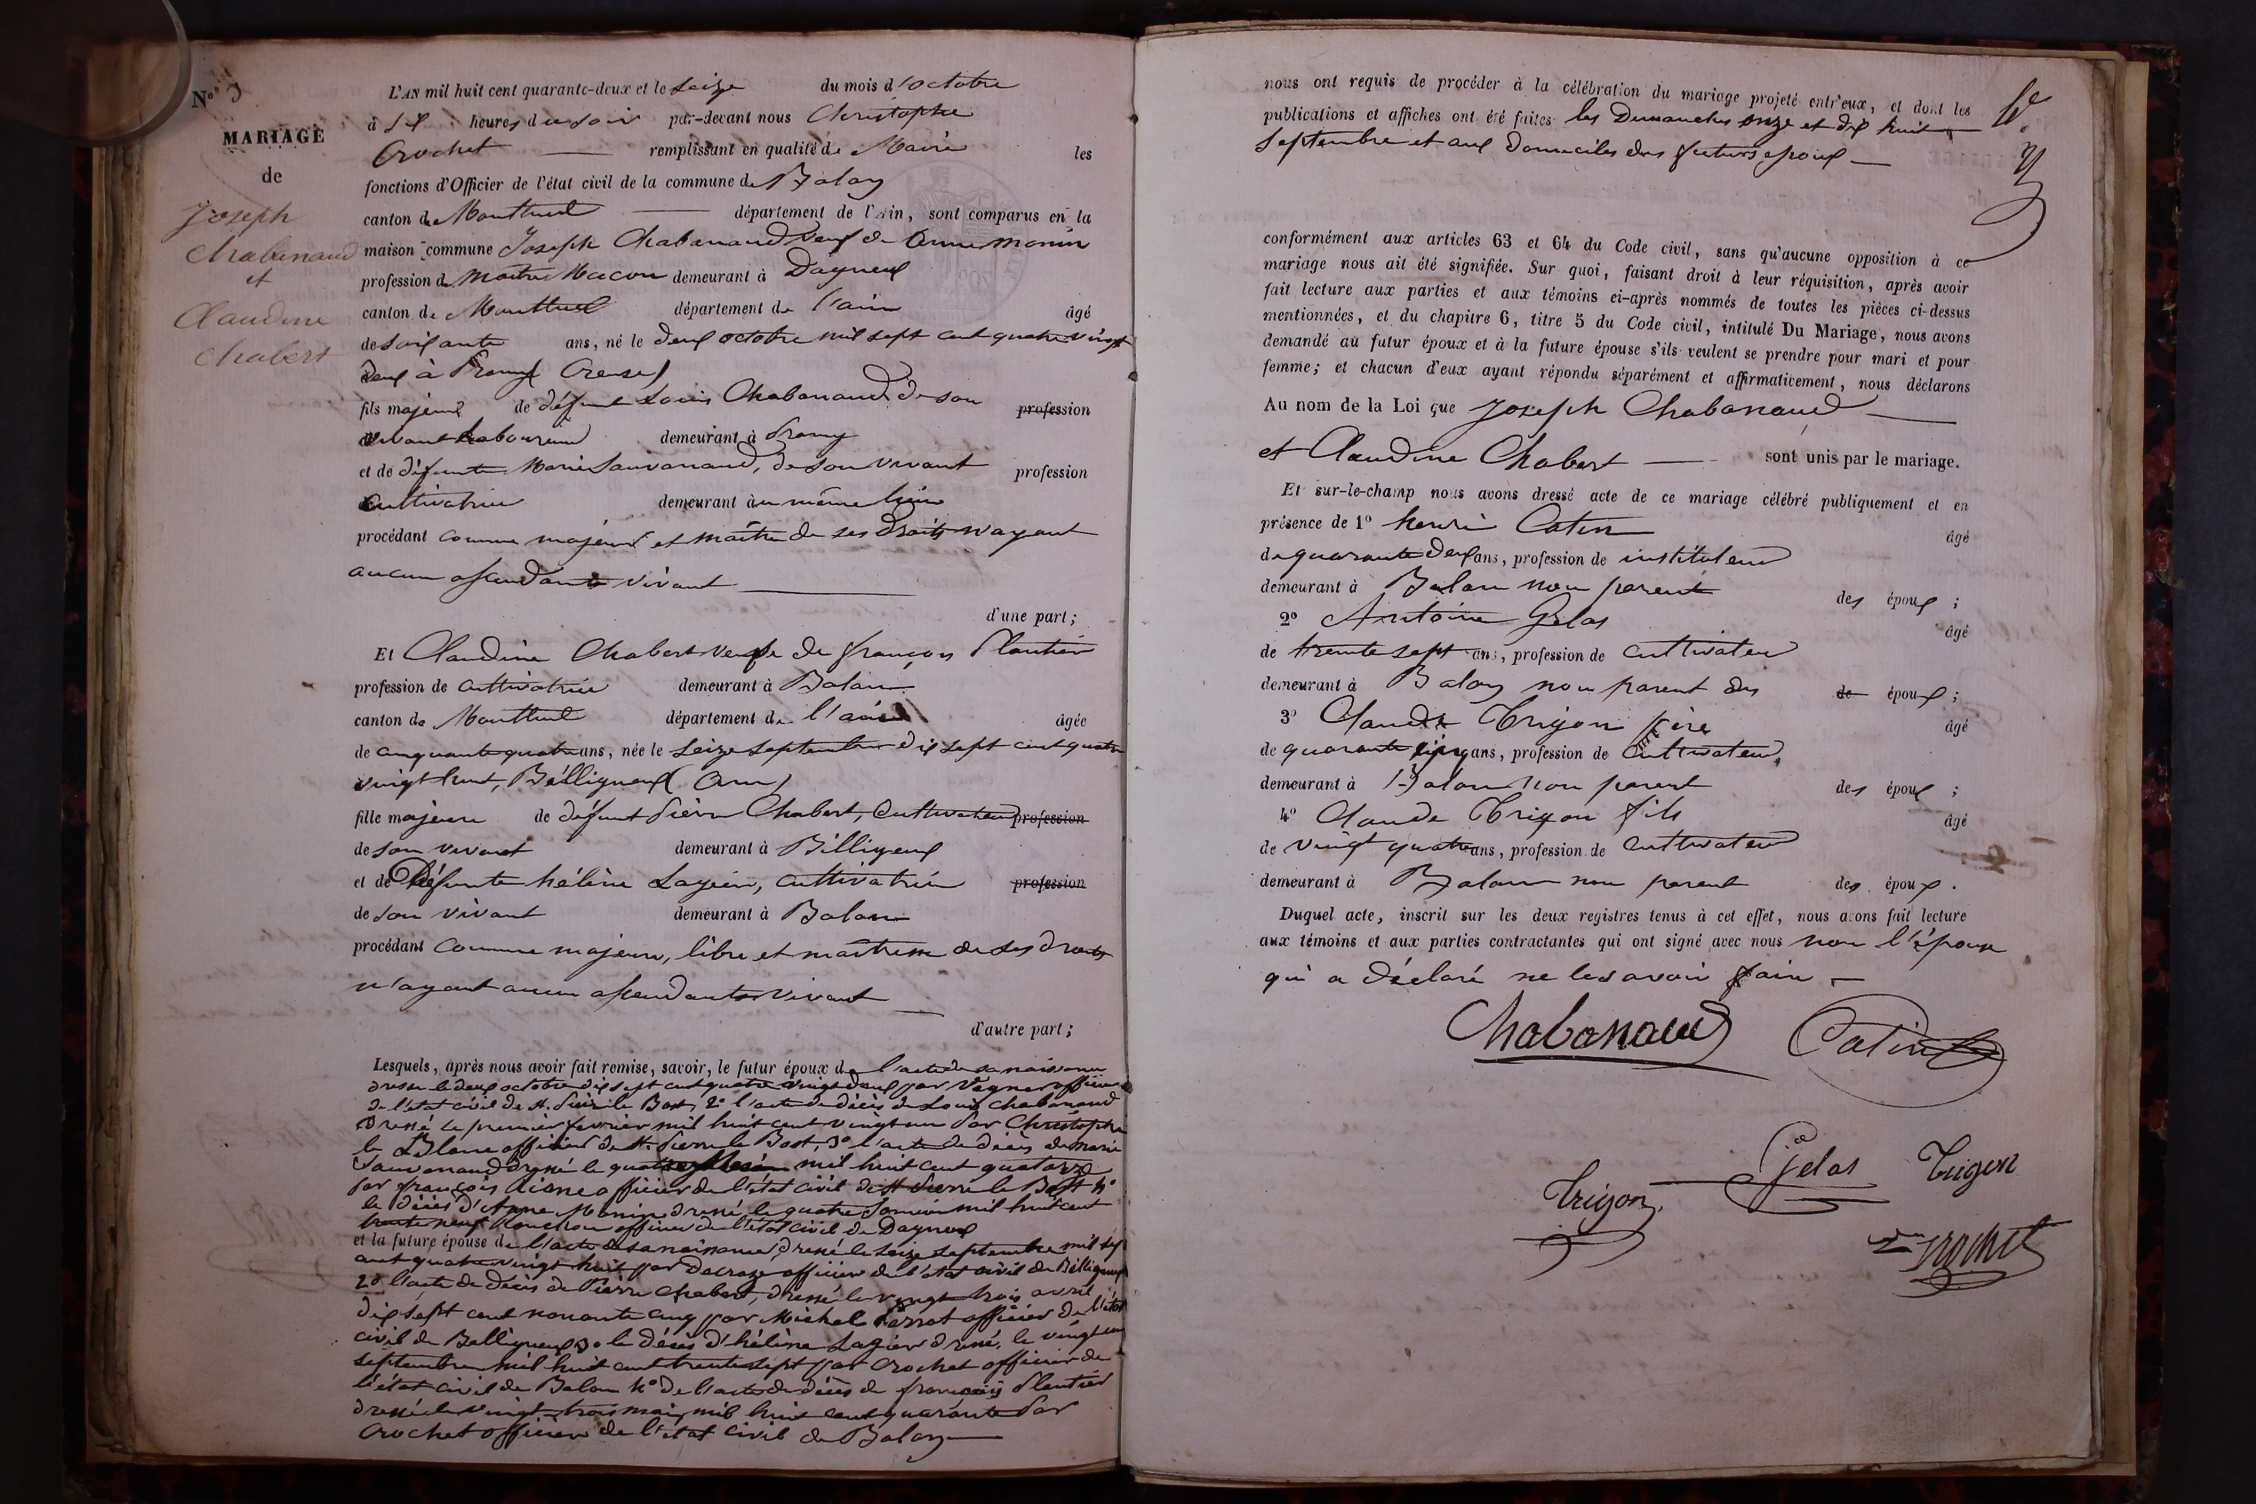 N° 9
MARIAGE
de
Joseph
Chabanaud
et
Claudine
Chabert
L'AN mil huit cent quarante-deux et le seize du mois d'octobre
à six heures du soir par-devant nous Christophe
Crochet remplissant en qualité de Maire les
fonctions d'Officier de l'état civil de la commune de Balan
canton de Montluel département de l'Ain, sont comparus en la
maison commune Joseph Chabanaud veuf de Anne Monin
profession de maitre Macon demeurant à Dagneux
canton de Montluel département de l'ain âgé
de soixante ans, né le deux octobre mil sept cent quatre vingt
deux à (Creuse)
fils majeur de défunt Louis Chabanaud de son profession
vivant Laboureur demeurant à
et de défunte Marie Sauvanaud, de son vivant profession
cultivatrice demeurant au même lieu
procédant comme majeur et maître de ses droits n'ayant
aucun ascendants vivant
d'une part;
Et Claudine Chabert veuve de françois Plantier
profession de cultivatrice demeurant à Balan
canton de Montluel département de l'ain âgée
de cinquante quatre ans, née le seize septembre dix sept cent quatre
vingt huit, Bélligneux (Ain)
fille majeure de défunt Pierre Chabert, cultivateur profession
de son vivant demeurant à Billigneux
et de Défunte hélène Lagier, cultivatrice profession
de son vivant demeurant à Balan
procédant comme majeure, libre et maîtresse de ses droits
n'ayant aucun ascendants vivant
d'autre part;
Lesquels, après nous avoir fait remise, savoir, le futur époux de l'acte de sa naissance
dressé le deux octobre dix sept cent quatre vingt deux par officier
de l'état civil de St. Pierre le Bost, 2° l'acte de décès de Louis Chabanaud
Dressé le premier fevrier mil huit cent vingt un Par Christophe
le Blanc officier de St. Pierre le Bost, 3° l'acte de décès de Marie
Sauvanaud dressé le mil huit cent quatorze
Par françois officier de l'état civil de St Pierre le Bost 4°
le décès d'Anne Monin dressé le quatre mil huit cent
trente neuf officier de l'état civil de Dagneux
et la future épouse de l'acte de sa naissance, dressé le seize septembre mil sept
cent quatre vingt huit par officier de l'état civil de Bélligneux
2° l'acte de décès de Pierre Chabert, dressé le vingt trois avril
dix sept cent nonante cinq par Michel officier de l'état
civil de Belligneux 3° le décès d'hélène Lagier dressé, le vingt un
septembre mil huit cent trente sept par Crochet officier de
l'état civil de Balan 4° de l'acte de décès de françois Plantier
dressé le vingt trois mai, mil huit cent quarante Par
Crochet officier de l'état civil de Balan
nous ont requis de procéder à la célébration du mariage projeté entr'eux, et dont les
publications et affiches ont été faites les Dimanches onze et dix huit
septembre et aux domiciles des futurs epoux
conformément aux articles 63 et 64 du Code civil, sans qu'aucune opposition à ce
mariage nous ait été signifiée. Sur quoi, faisant droit à leur réquisition, après avoir
fait lecture aux parties et aux témoins ci-après nommés de toutes les pièces ci-dessus
mentionnées, et du chapitre 6, titre 5 du Code civil, intitulé Du Mariage, nous avons
demandé au futur époux et à la future épouse s'ils veulent se prendre pour mari et pour
femme; et chacun d'eux ayant répondu séparément et affirmativement, nous déclarons
Au nom de la Loi que Joseph Chabanaud
et Claudine Chabert sont unis par le mariage.
Et sur-le-champ nous avons dressé acte de ce mariage célébré publiquement et en
présence de 1° henri Catin âgé
de quarante deux ans, profession de instituteur
demeurant à Balan non parent des époux ;
2° Antoine Gelas âgé
de trente sept ans, profession de cultivateur
demeurant à Balan non parent des de époux ;
3° Claude Trigon père âgé
de quarante cinq ans, profession de cultivateur
demeurant à Balan non parent des époux ;
4° Claude Trigon fils âgé
de vingt quatre ans, profession de cultivateur
demeurant à Balan non parent des époux.
Duquel acte, inscrit sur les deux registres tenus à cet effet, nous avons fait lecture
aux témoins et aux parties contractantes qui ont signé avec nous non l'épouse
qui a déclaré ne le savoir faire
Chabanaud Catin
Gelas Trigon
Trigon
Crochet